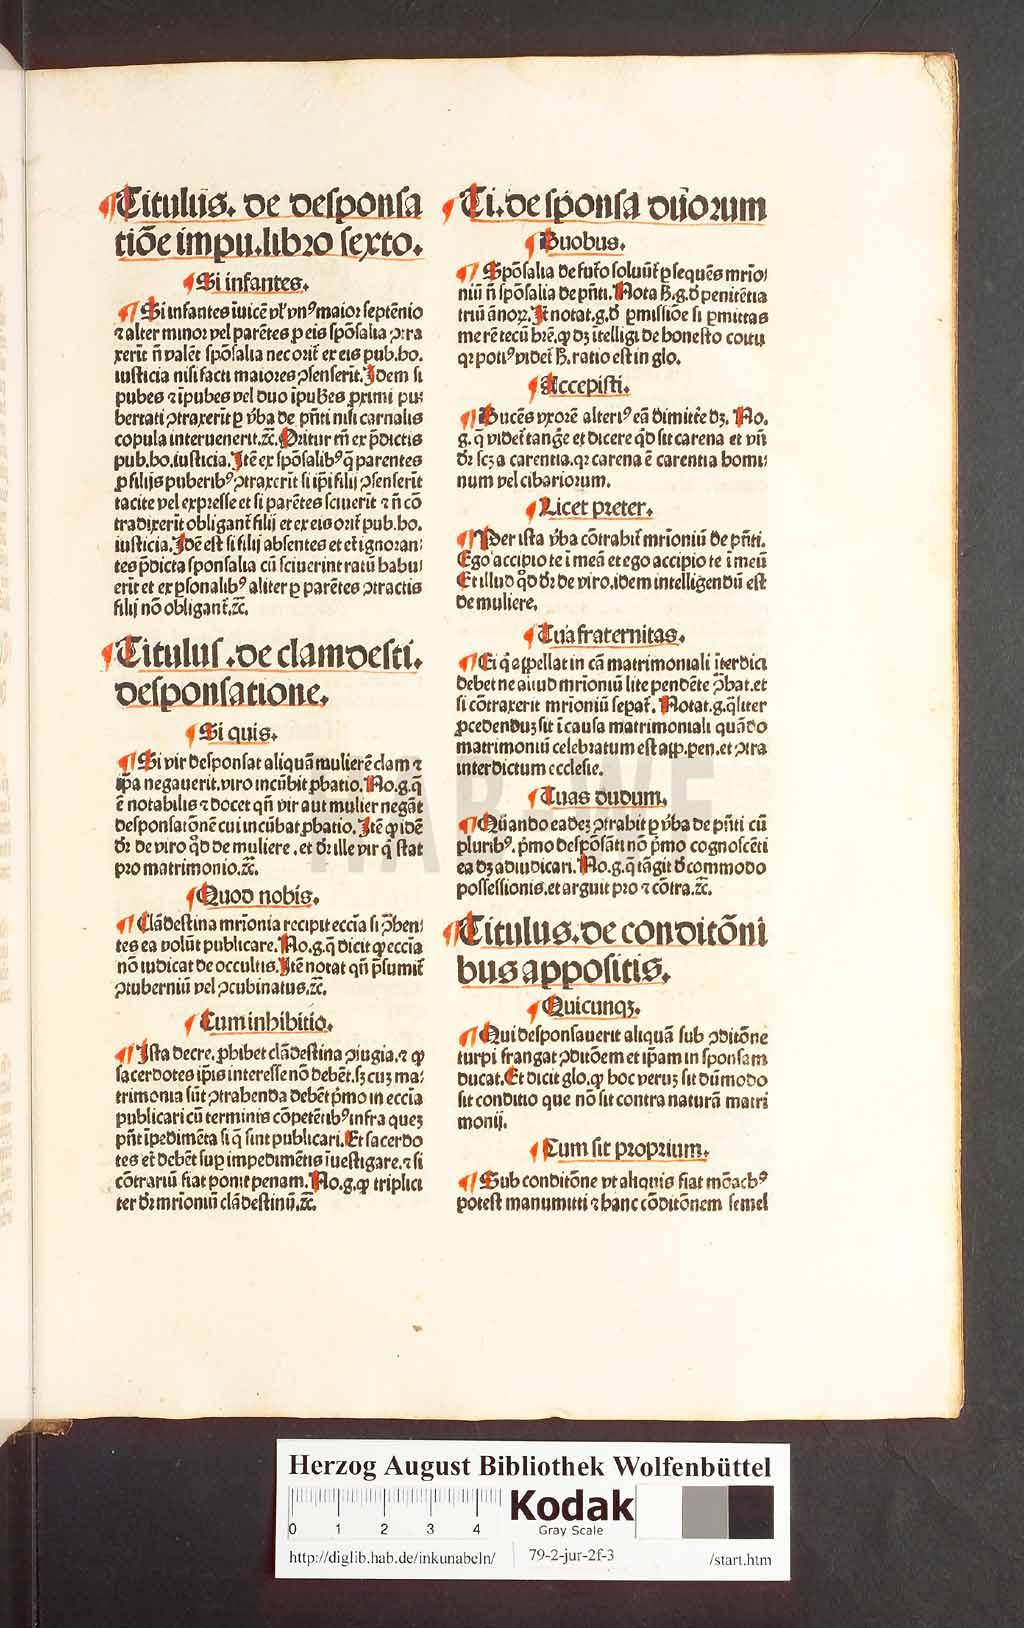 ¶Titulus. de desponsa
tiōe impu.libro sexto.
¶Si infantes.
¶Si infantes īuicē vl' vnꝰ maior septēnio
⁊ alter minor vel parētes ꝑ eis spōsalia ꝯtra
xerīt nō valēt spōsalia nec orīt̉ ex eis pub.ho.
iusticia nisi facti maiores ꝯsenserīt. Idem si
pubes ⁊ īpubes vel duo īpubes proximi pu⸗
bertati ꝯtraxerīt ꝑ v̉ba de p̄nti nisi carnalis
copula interuenerit.⁊c̄. Oritur tm̄ ex p̄dictis
pub.ho.iusticia. Itē ex spōsalibꝰ q̄ parentes
ꝓ filijs puberibꝰ ꝯtraxerīt si ip̄i filij ꝯsenserīt
tacite vel expresse et si parētes sciuerīt ⁊ nō cō
tradixerīt obligant̉ filij et ex eis orīt̉ pub.ho.
iusticia. Idē est si filij absentes et et̄ ignoran⸗
tes p̄dicta sponsalia cū sciuerint ratū habu⸗
erīt et ex ꝑsonalibꝰ aliter ꝑ parētes ꝯtractis
filij nō obligant̉.⁊c̄.
¶Titulus .de clamdesti.
desponsatione.
¶Si quis.
¶Si vir desponsat aliquā mulierē clam ⁊
ip̄a negauerit.viro incūbit ꝓbatio. No.g.q̄
ē notabilis ⁊ docet qn̄ vir aut mulier negāt
desponsatōnē cui incūbat ꝓbatio. Itē ꝙ idē
dr̄ de viro qd̄ de muliere . et dr̄ ille vir q̄ stat
pro matrimonio.⁊c̄.
¶Quod nobis.
¶Clādestina mr̄ionia recipit eccīa si ꝯ̄hen⸗
tes ea volūt publicare. No.g.q̄ dicit ꝙ eccīa
nō iudicat de occultis. Itē notat qn̄ p̄sumit̉
ꝯtuberniū vel ꝯcubinatus.⁊c̄.
¶Cum inhibitio.
¶Ista decre.ꝓhibet clādestina ꝯiugia.⁊ ꝙ
sacerdotes ip̄is interesse nō debēt.sꝫ cuꝫ ma⸗
trimonia sūt ꝯtrahenda debēt p̄mo in eccīa
publicari cū terminis cōpetētibꝰ infra queꝫ
pn̄t īpedimēta si q̄ sint publicari. Et sacerdo
tes et̄ debēt suꝑ impedimētis īuestigare.⁊ si
cōtrariū fiat ponit penam. No.g.ꝙ triplici
ter dr̄ mr̄ioniū clādestinū.⁊c̄.
¶Ti.de sponsa duorum
¶Duobus.
¶Spōsalia de futo̍ soluūt̉ ꝑ sequēs mr̄io⸗
niū nō spōsalia de p̄nti. Nota h̄.g.d̄ penitētia
triū annoꝝ. It̄ notat.g.d̄ ꝑmissiōe si ꝑmittas
me rē tecū hr̄e.ꝙ dꝫ ītelligi de honesto coitu
qꝛ potiꝰ videt̉ h̄.ratio est in glo.
¶Accepisti.
¶Ducēs vxorē alteriꝰ eā dimitte̍ dꝫ. No.
g.q̄ videt̉ tange̍ et dicere qd̄ sit carena et vn̄
dr̄ scꝫ a carentia.qꝛ carena ē carentia homi⸗
num vel cibariorum.
¶Licet preter.
¶Per ista v̉ba cōtrahit̉ mr̄ioniū de p̄nti.
Ego accipio te ī meā et ego accipio te ī meū
Et illud qd̄ dr̄ de viro.idem intelligendū est
de muliere.
¶Tua fraternitas.
¶Ei q̄ appellat in cā matrimoniali īterdici
debet ne aliud mr̄ioniū lite pendēte ꝯ̄hat.et
si cōtraxerit mr̄ioniū separat̉. Notat.g.q̄liter
ꝓcedenduꝫ sit ī causa matrimoniali quādo
matrimoniū celebratum est app.pen.et ꝯtra
interdictum ecclesie.
¶Tuas dudum.
¶Quando eadeꝫ ꝯtrahit ꝑ v̉ba de p̄nti cū
pluribꝰ. p̄mo despōsāti nō p̄mo cognoscēti
ea dꝫ adiudicari. No.g.q̄ tāgit d̄ commodo
possessionis.et arguit pro ⁊ cōtra.⁊c̄.
¶Titulus.de conditōni
bus appositis.
¶Quicunqꝫ.
¶Qui desponsauerit aliquā sub ꝯditōne
turpi frangat ꝯditōem et ip̄am in sponsam
ducat. Et dicit glo.ꝙ hoc veruꝫ sit dūmodo
sit conditio que nō sit contra naturā matri
monij.
¶Cum sit proprium.
¶Sub conditōne vt aliquis fiat mōachꝰ
potest manumitti ⁊ hanc cōditōnem semel
HAB-WF
Herzog August Bibliothek Wolfenbüttel
0 1 2 3 4
Kodak
Gray Scale
http://diglib.hab.de/inkunabeln/ 79-2-jur-2f-3 /start.htm